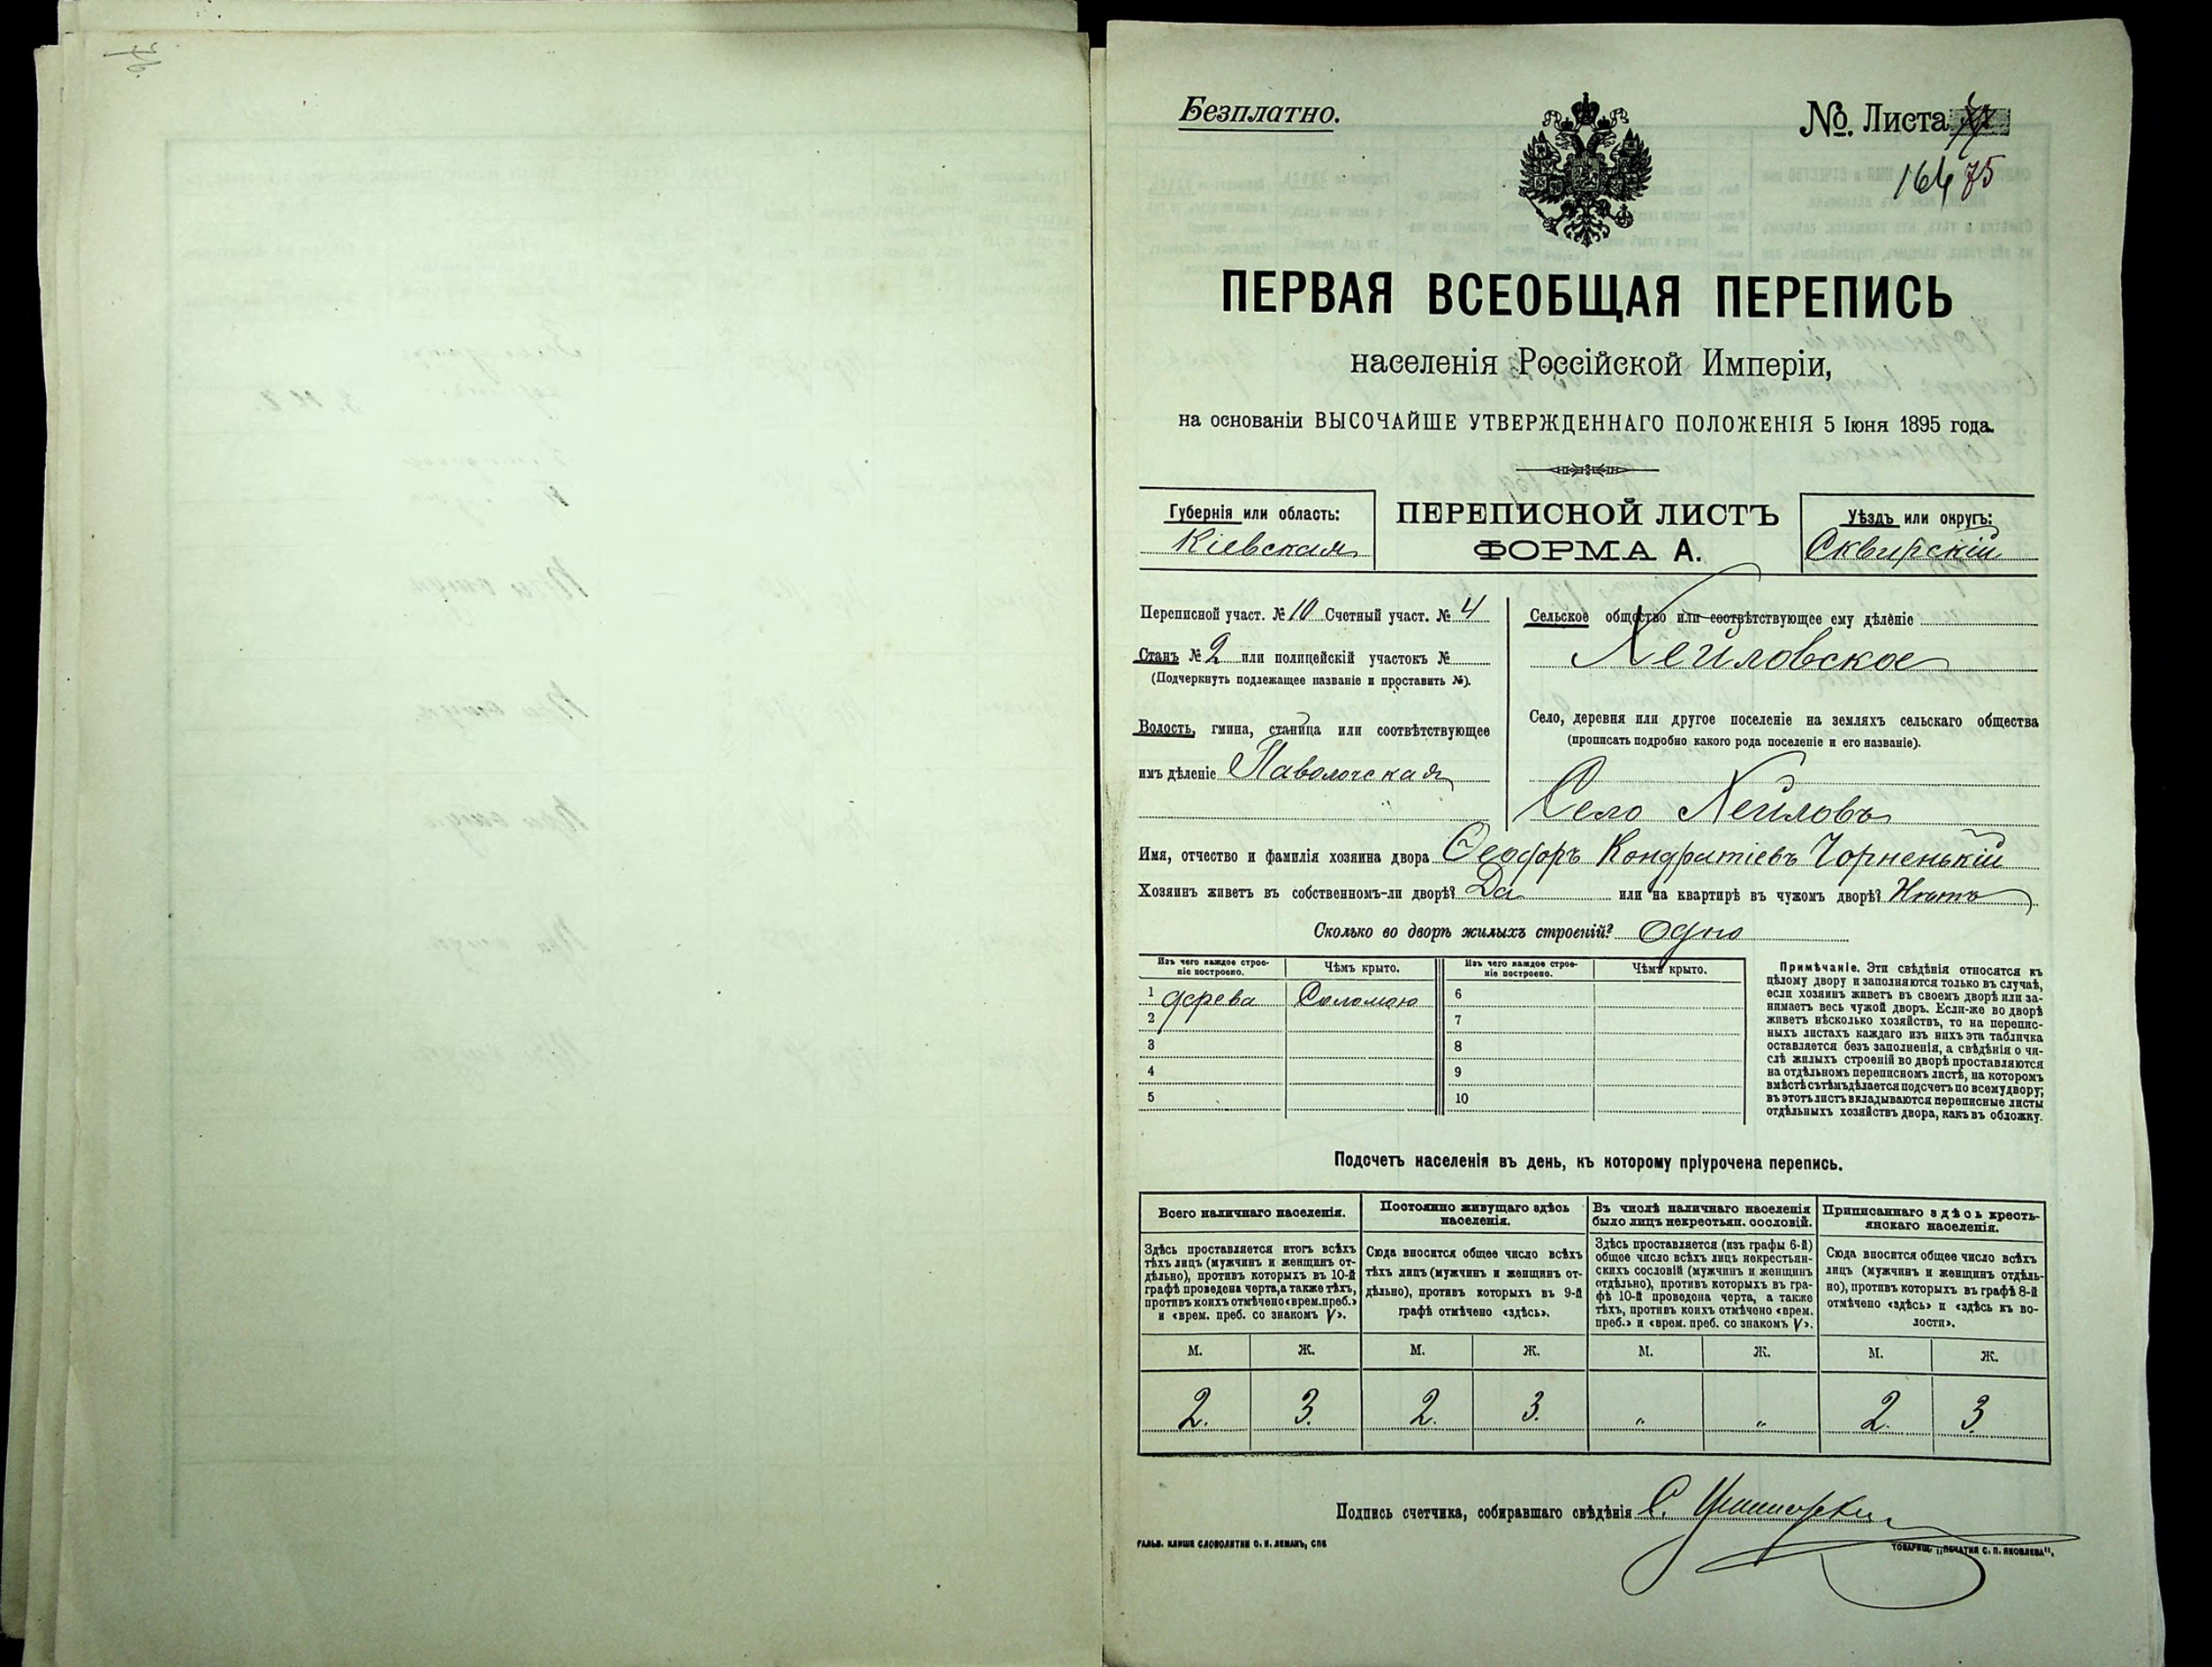 Безплатно.
№. Листа
75
ПЕРВАЯ ВСЕОБЩАЯ ПЕРЕПИСЬ
населенія Россійской Имперіи,
на основаніи ВЫСОЧАЙШЕ УТВЕРЖДЕННАГО ПОЛОЖЕНІЯ 5 Іюня 1895 года.
Губернія или область:
Кіевская
ПЕРЕПИСНОЙ ЛИСТЪ
ФОРМА А.
Уѣздъ или округъ:
Сквирскій
Переписной участ. № 10 Счетный участ. № 4
Станъ № 2 или полицейскій участокъ №
(Подчеркнуть подлежащее названіе и проставить №).
Волость, гмина, станица или соотвѣтствующее
имъ дѣленіе Паволочская
Сельское общество или соотвѣтствующее ему дѣленіе
Хейловское
Село, деревня или другое поселеніе на земляхъ сельскаго общества
(прописать подробно какого рода поселеніе и его названіе).
Село Хейловъ
Имя, отчество и фамилія хозяина двора Ѳеодоръ Кондратіевъ Чорненькій
Хозяинъ живетъ въ собственномъ-ли дворѣ? Да или на квартирѣ въ чужомъ дворѣ? Нѣтъ
Сколько во дворѣ жилыхъ строеній? Одно
Изъ чего каждое строе-
ніе построено.
Чѣмъ крыто.
Изъ чего каждое строе-
ніе построено.
Чѣмъ крыто.
1 дерева Соломою 6
2 7
3 8
4 9
5 10
Примѣчаніе. Эти свѣдѣнія относятся къ
цѣлому двору и заполняются только въ случаѣ,
если хозяинъ живетъ въ своемъ дворѣ или за-
нимаетъ весь чужой дворъ. Если-же во дворѣ
живетъ нѣсколько хозяйствъ, то на перепис-
ныхъ листахъ каждаго изъ нихъ эта табличка
оставляется безъ заполненія, а свѣдѣнія о чи-
слѣ жилыхъ строеній во дворѣ проставляются
на отдѣльномъ переписномъ листѣ, на которомъ
вмѣстѣ съ тѣмъ дѣлается подсчетъ по всему двору;
въ этотъ листъ вкладываются переписные листы
отдѣльныхъ хозяйствъ двора, какъ въ обложку.
Подсчетъ населенія въ день, къ которому пріурочена перепись.
Всего наличнаго населенія.
Здѣсь проставляется итогъ всѣхъ
тѣхъ лицъ (мужчинъ и женщинъ от-
дѣльно), противъ которыхъ въ 10-й
графѣ проведена черта, а также тѣхъ,
противъ коихъ отмѣчено «врем. преб.»
и «врем. преб. со знакомъ V».
Постоянно живущаго здѣсь
населенія.
Сюда вносится общее число всѣхъ
тѣхъ лицъ (мужчинъ и женщинъ от-
дѣльно), противъ которыхъ въ 9-й
графѣ отмѣчено «здѣсь».
Въ числѣ наличнаго населенія
было лицъ некрестьян. сословій.
Здѣсь проставляется (изъ графы 6-й)
общее число всѣхъ лицъ некрестьян-
скихъ сословій (мужчинъ и женщинъ
отдѣльно), противъ которыхъ въ гра-
фѣ 10-й проведена черта, а также
тѣхъ, противъ коихъ отмѣчено «врем.
преб.» и «врем. преб. со знакомъ V».
Приписаннаго здѣсь кресть-
янскаго населенія.
Сюда вносится общее число всѣхъ
лицъ (мужчинъ и женщинъ отдѣль-
но), противъ которыхъ въ графѣ 8-й
отмѣчено «здѣсь» и «здѣсь къ во-
лости».
М. Ж. М. Ж. М. Ж. М. Ж.
2. 3. 2. 3. " " 2. 3
Подпись счетчика, собиравшаго свѣдѣнія С.
ГАЛЬВ. КЛИШЕ СЛОВОЛИТНИ О. И. ЛЕМАНЪ, СПБ
ТОВАРИЩ. „ПЕЧАТНЯ С. П. ЯКОВЛЕВА“.